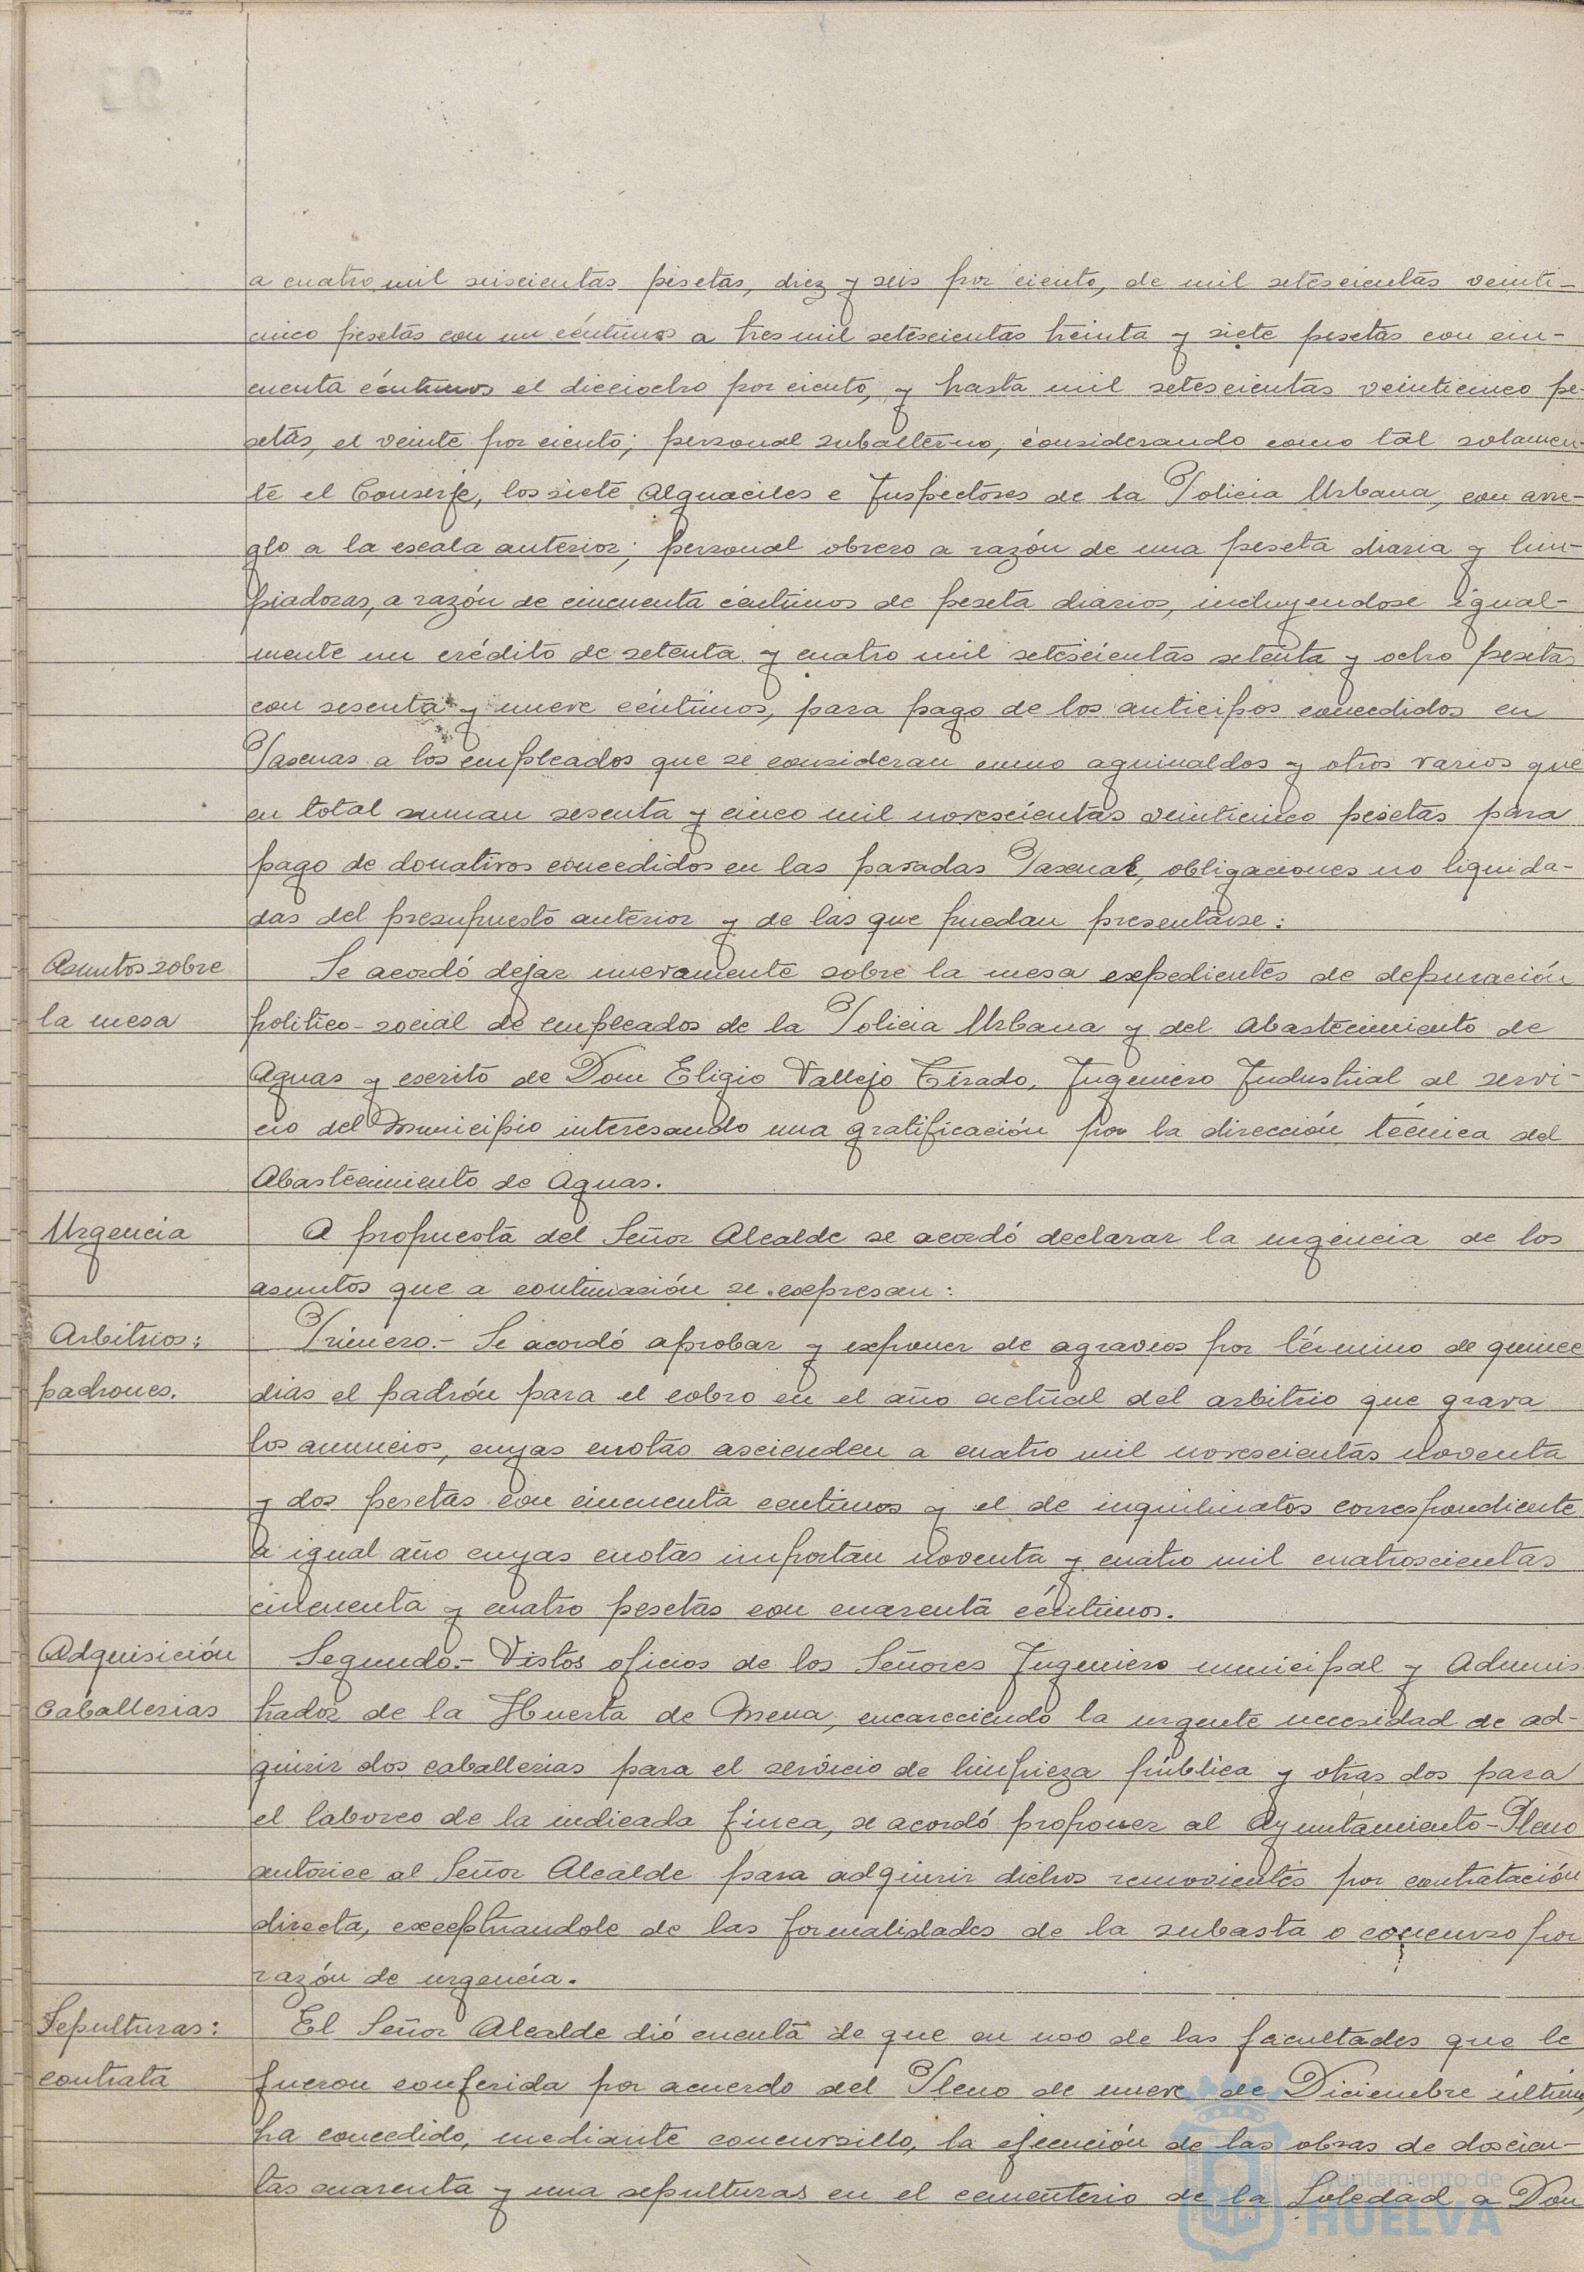 a cuatro mil seiscientas pesetas, diez y seis por ciento, de mil setescientas veinti-
cinco pesetas con un céntimos a tres mil setescientas treinta y siete pesetas con cin-
cuenta céntimos el dieciocho por ciento, y hasta mil setescientas veinticinco pe-
setas, el veinte por ciento; personal subalterno, considerando como tal solamen-
te el Conserje, los siete Alguaciles e Inspectores de la Policia Urbana, con arre-
glo a la escala anterior; personal obrero a razón de una peseta diaria y lim-
piadoras, a razón de cincuenta céntimos de peseta diarios, incluyendose igual-
mente un crédito de setenta y cuatro mil setescientas setenta y ocho pesetas
con sesenta y nueve céntimos, para pago de los anticipos concedidos en
Pascuas a los empleados que se consideran como aguinaldos y otros varios que
en total suman sesenta y cinco mil novescientas veinticinco pesetas para
pago de donativos concedidos en las pasadas Pascuas, obligaciones no liquida-
das del presupuesto anterior y de las que puedan presentarse:
Asuntos sobre
la mesa
Se acordó dejar nuevamente sobre la mesa expedientes de depuración
politico-social de empleados de la Policia Urbana y del Abastecimiento de
Aguas y escrito de Don Eligio Vallejo Tirado, Ingeniero Industrial al servi-
cio del Municipio interesando una gratificación por la dirección técnica del
Abastecimiento de Aguas.
Urgencia
A propuesta del Señor Alcalde se acordó declarar la urgencia de los
asuntos que a continuación se expresan:
Arbitrios:
padrones.
Primero.- Se acordó aprobar y exponer de agravios por término de quince
dias el padrón para el cobro en el año actual del arbitrio que grava
los anuncios, cuyas cuotas ascienden a cuatro mil novescientas noventa
y dos pesetas con cincuenta centimos y el de inquilinatos correspondiente
a igual año cuyas cuotas importan noventa y cuatro mil cuatroscientas
cincuenta y cuatro pesetas con cuarenta céntimos.
Adquisición
Caballerias
Segundo.- Vistos oficios de los Señores Ingeniero municipal y Adminis
trador de la Huerta de Mena, encareciendo la urgente necesidad de ad-
quirir dos caballerias para el servicio de limpieza pública y otras dos para
el laboreo de la indicada finca, se acordó proponer al Ayuntamiento-Pleno
autorice al Señor Alcalde para adquirir dichos semovientes por contratación
directa, exceptuandole de las formalidades de la subasta o concurso por
razón de urgencia.
Sepulturas:
contrata
El Señor Alcalde dió cuenta de que en uso de las facultades que le
fueron conferida por acuerdo del Pleno de nueve de Diciembre último,
ha concedido, mediante concursillo, la ejecución de las obras de doscien-
tas cuarenta y una sepulturas en el cementerio de la Soledad a Don
Ayuntamiento de
HUELVA